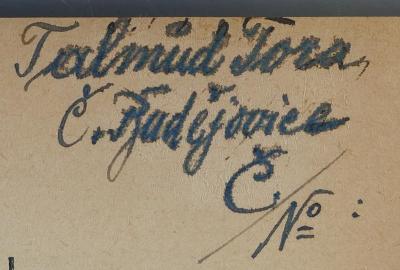 Talmud Tora,
Č. Budějovice
Č.
/ No :